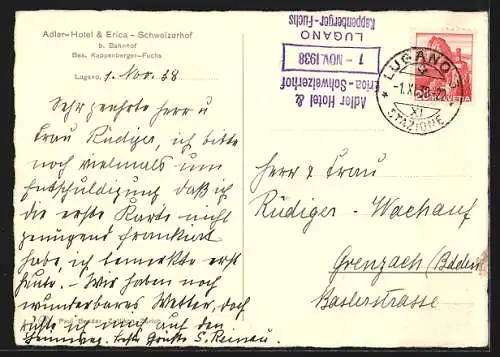 Adler-Hotel & Erica - Schweizerhof
b. Bahnhof
Bes. Kappenberger-Fuchs
Lugano, 1. Nov. 38
Sehr geehrte Herr u
Frau Rüdiger, ich bitte
noch vielmals um
Entschuldigung daß ich
die erste Karte nicht
genügend frankiert
habe, ich bemerkte erst
heute. - Wir haben noch
wunderbares Wetter, doch
ich mich auf den
Heimweg. Grüße S. Reinau.
Adler Hotel &
Erica - Schweizerhof
1 - NOV. 1938
LUGANO
Kappenberger-Fuchs
LUGANO
-1.XI.38-22
XI
STAZIONE
HELVETIA
Herr u Frau
Rüdiger - Wachauf
Grenzach (Baden)
Baslerstrasse